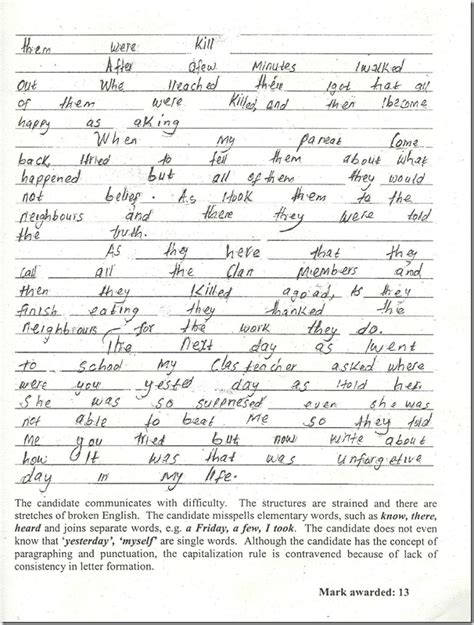 them were kill
After afew Minutes I walked
Out Whe I reached there I got that all
of them were killed, and then I become
happy as aking
When My Pareat Come
back, I tried to tell them about what
happened but all of them they would
not belief. As I took them to the
neighbours and there they were told
the truth.
As they here that they
call all the Clan Members and
then they killed agoad, As they
finish eating they thanked the
neighbours for the work they do.
The next day as I went
to school My Classteacher asked where
were you yested day as I told her
She was so suppresed even she was
not able to beat Me so they told
Me you tried but now write about
how It was that was Unforgetive
day in My life.
The candidate communicates with difficulty. The structures are strained and there are
stretches of broken English. The candidate misspells elementary words, such as know, there,
heard and joins separate words, e.g. a Friday, a few, I took. The candidate does not even
know that ‘yesterday’, ‘myself’ are single words. Although the candidate has the concept of
paragraphing and punctuation, the capitalization rule is contravened because of lack of
consistency in letter formation.
Mark awarded: 13